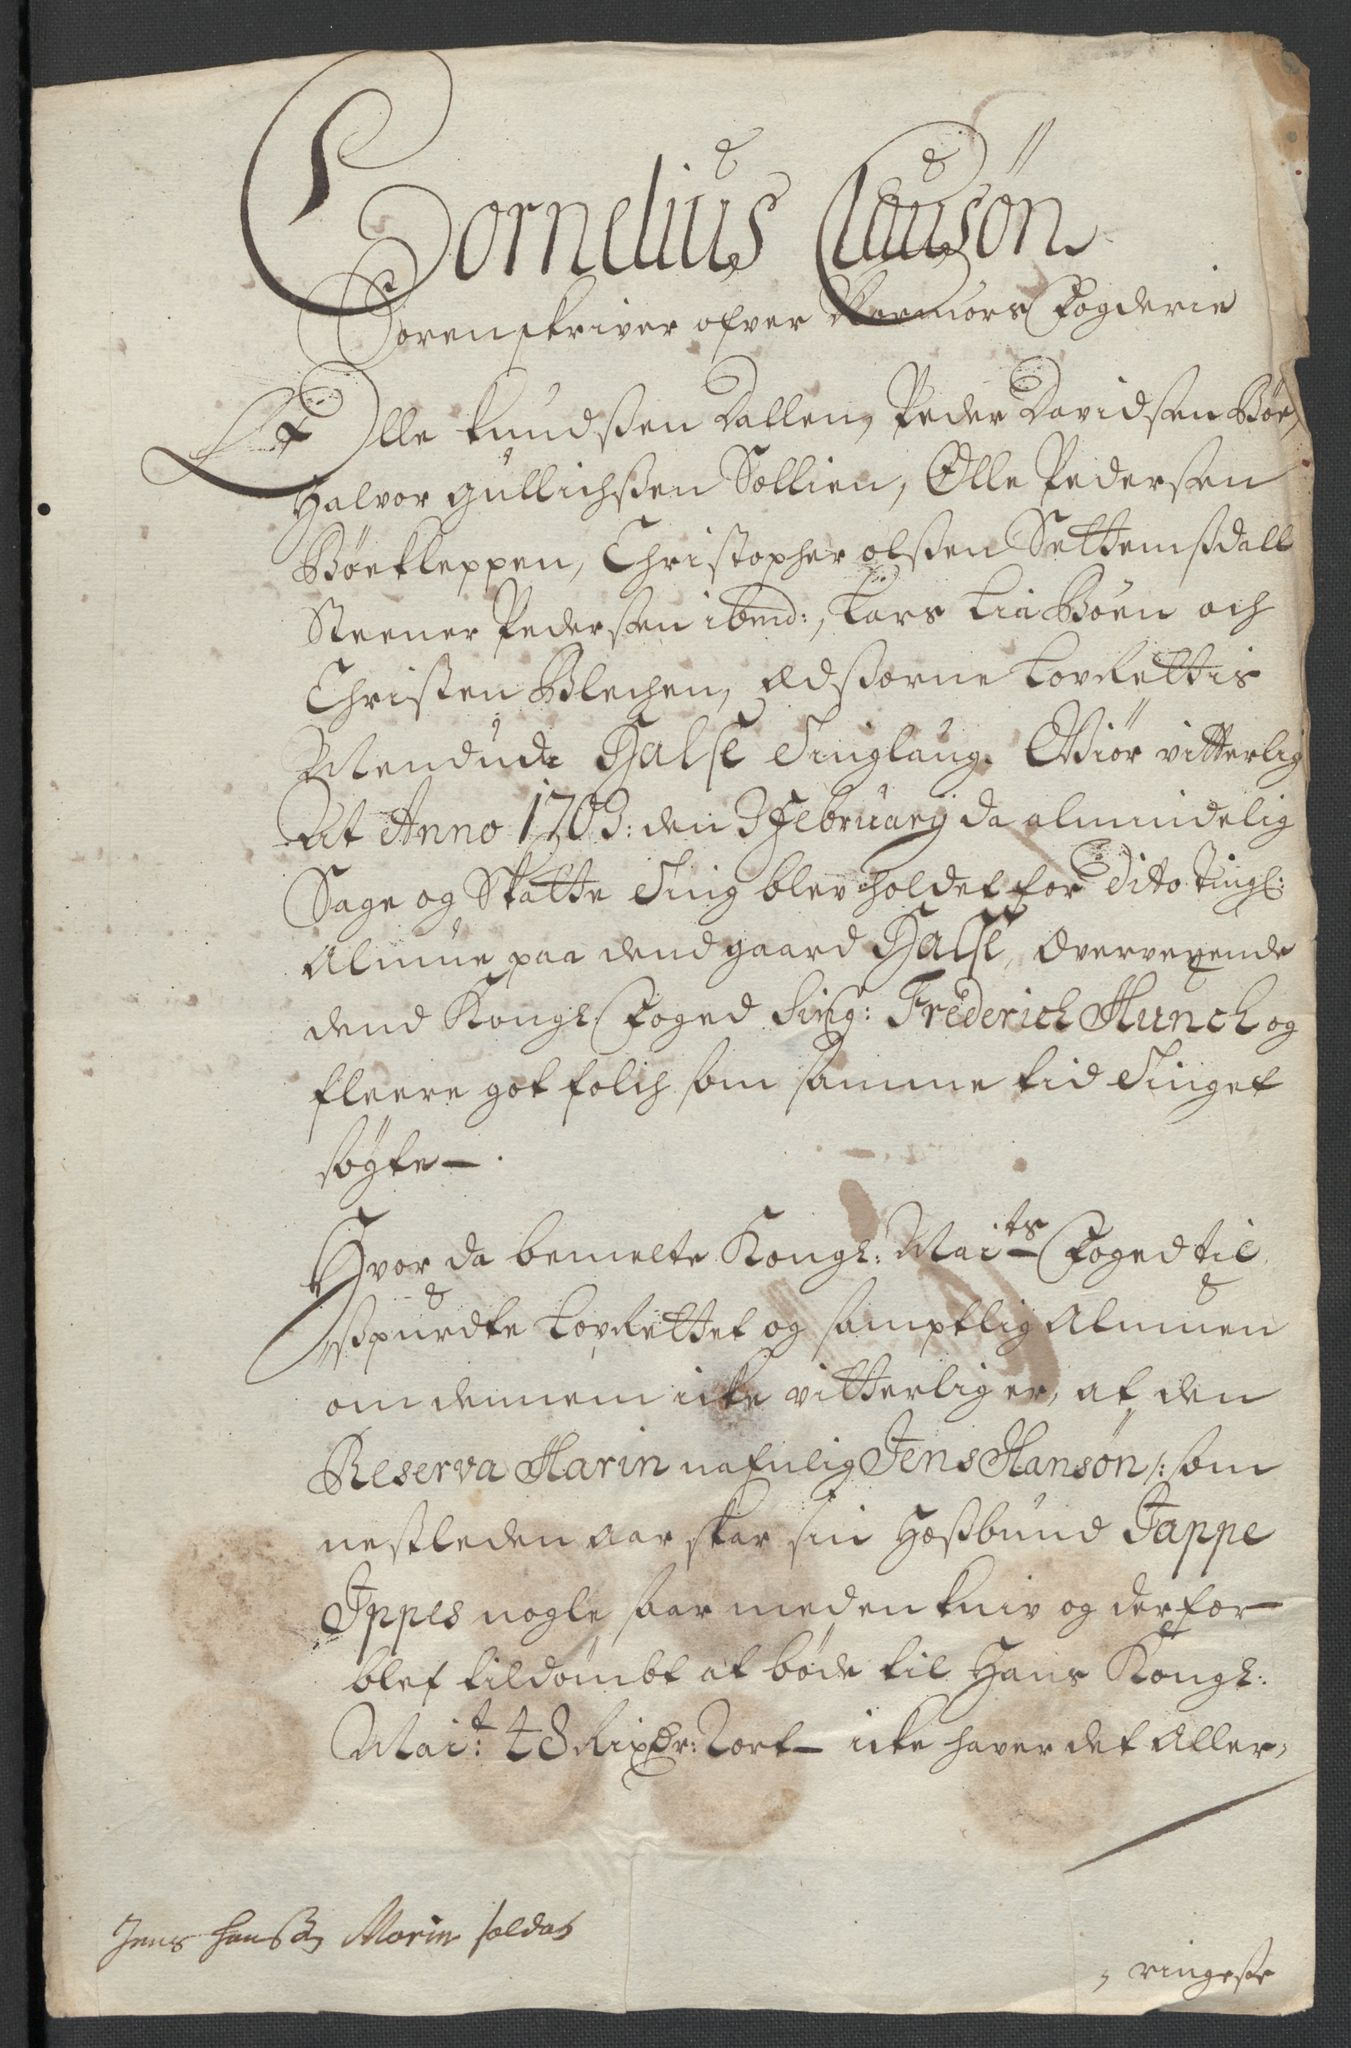 Cornelius Clausøn
Sorenskriver ofver Nermørs Fogderie
Olle Knudsßen Dallen, Peder Davidsen Bøe,
Halvor Gullichsßen Sollien, Olle Pedersen
Bøekleppen, Christopher olsßen Settemsdall
Steener Pedersen ibmd:, Lars Lia Bøen och
Christen Blechen, Edsorne LovRettis
Mend udi Halse Tinglaug. Giør vitterlig
At Anno 1703: den 3 February da almindelig
Sage og Skatte Ting blev holdet for Dito Tingl:
Almue paa dend gaard Halse, Oververende
dend Kongl. Foged Sing: Frederich Munch og
fleere got folch som samme tid Tinget
søgte —.
Hvor da bemelte Kongl: Maits Foged til
spurdte LovRettet og samptlig Almuen
om dennem icke vitterlig er, at den
Reserva Marin nafnlig Jens Hansøn /: som
nestleden aar skar sin Hosbund Jappe
Ippes nogle saar med en kniv og derfor
blef tildømbt at bøde til Hans Kongl:
Mait: 48 Rixdr: Lort — icke haver det Aller,
Jens Hansøn Marin soldat
, ringeste